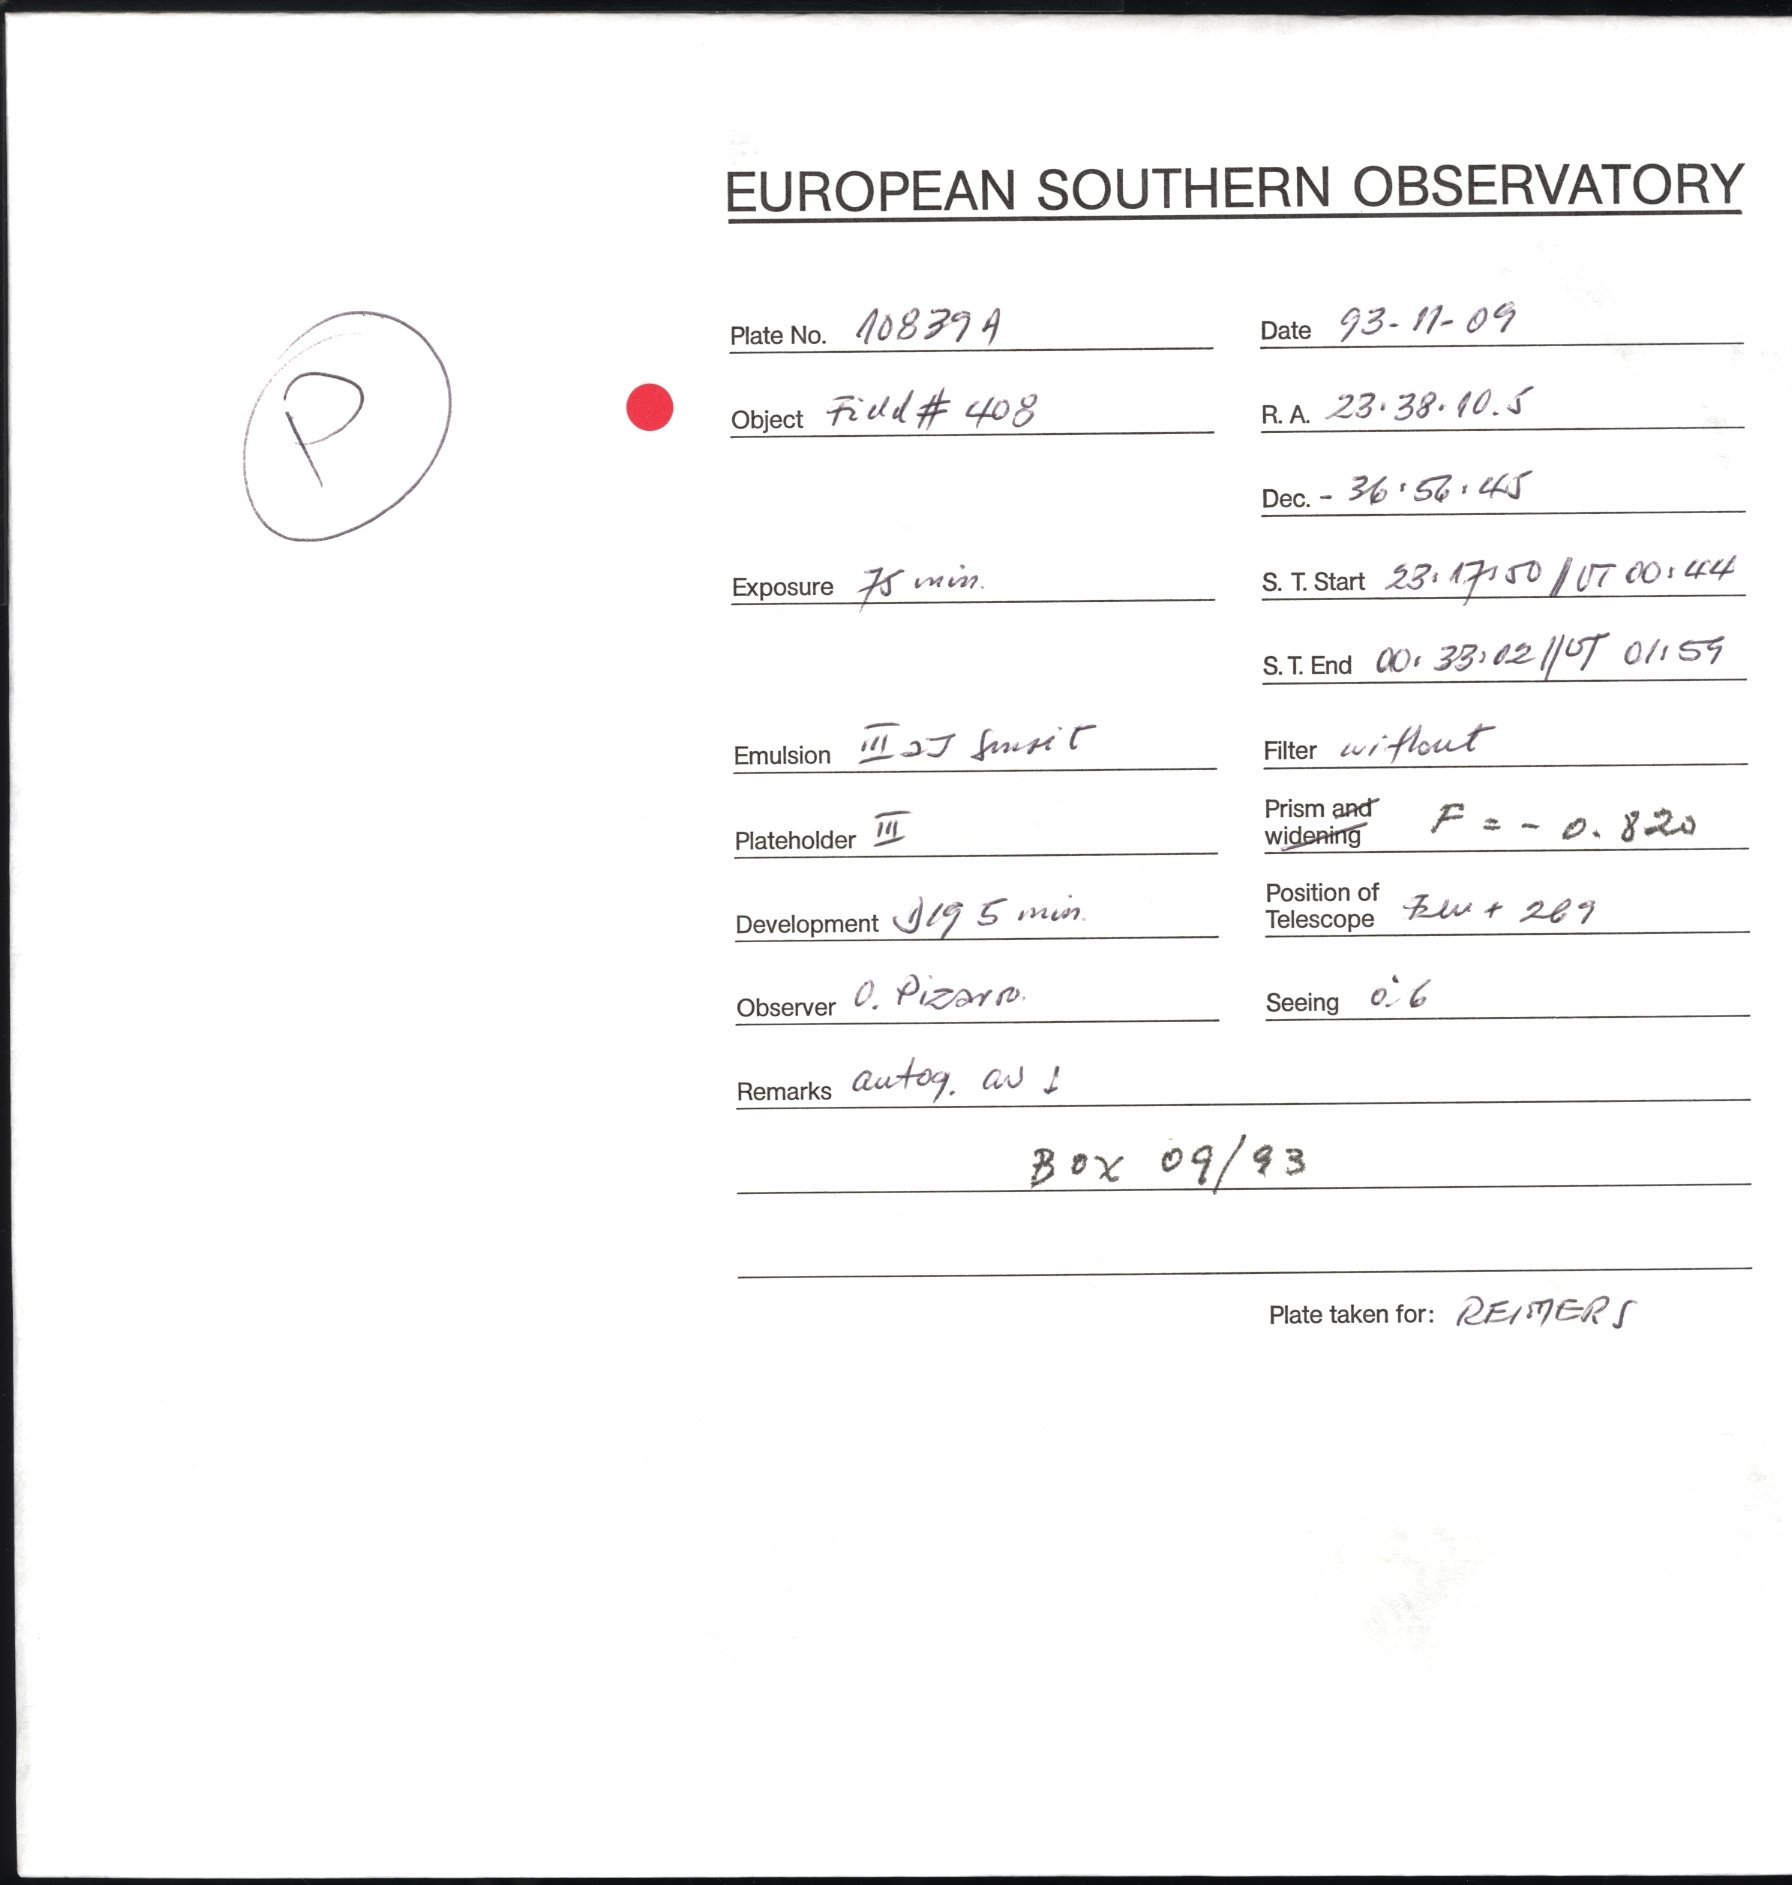 EUROPEAN SOUTHERN OBSERVATORY
P
Plate No. 10839A
Date 93-11-09
Object Field # 408
R. A. 23:38:10.5
Dec. - 36:56:45
Exposure 75 min.
S. T. Start 23:17:50 // UT 00:44
S. T. End 00:33:02 // UT 01:59
Emulsion III aJ sensit
Filter without
Plateholder III
Prism and widening F = - 0.820
Development D19 5 min.
Position of Telescope + 269
Observer O. Pizarro.
Seeing 0".6
Remarks autog.
BOX 09/93
Plate taken for: REIMERS